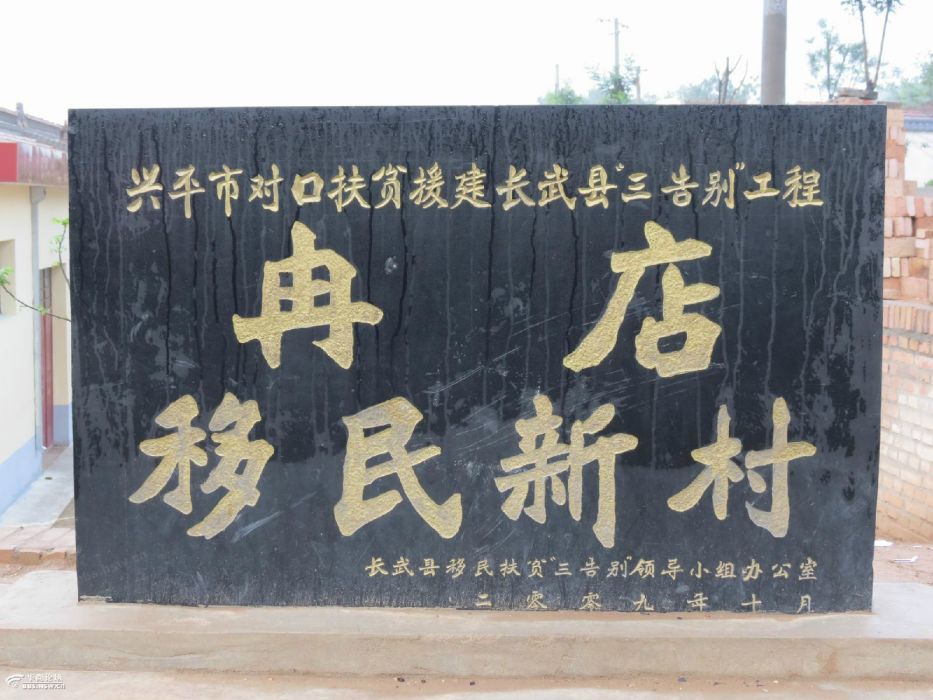 兴平市对口扶贫援建长武县"三告别"工程
冉店
移民新村
长武县移民扶贫"三告别"领导小组办公室
二零零九年十月
华商论坛
bbs.hsw.cn